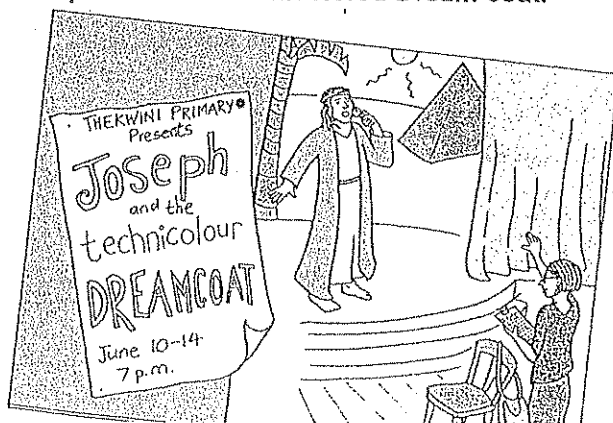 Dream Coat.
THEKWINI PRIMARY
Presents
Joseph
and the
technicolour
DREAMCOAT
June 10-14
7 p.m.